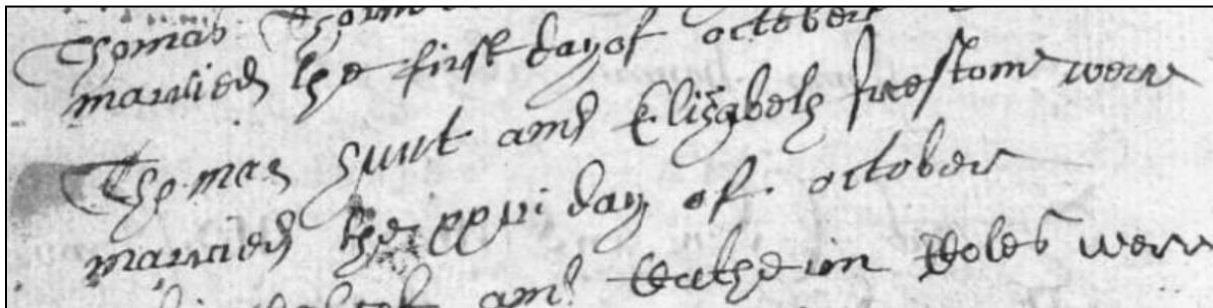 Thomas
married the first day of october
Thomas hunt and Elizabeth frestone were
married the xxvi day of october
and Katherin Coles were